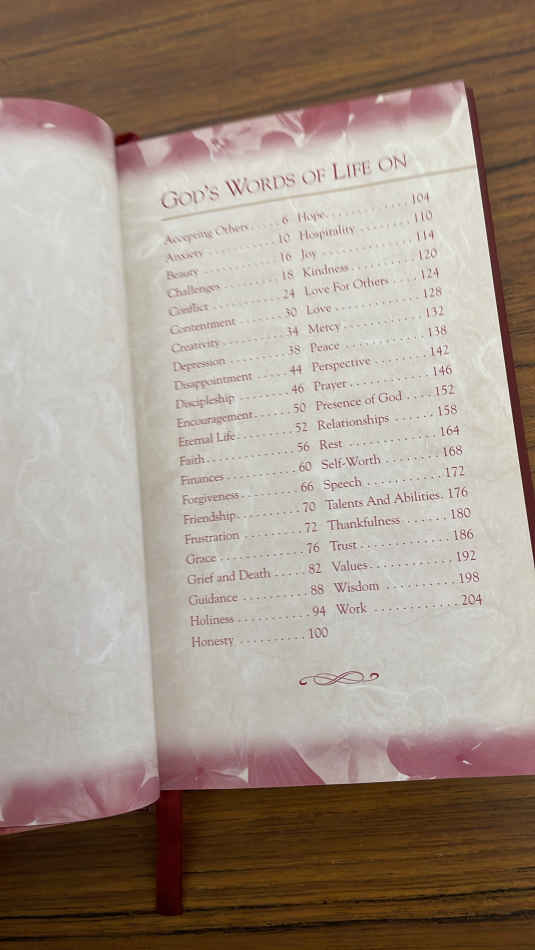 GOD'S WORDS OF LIFE ON
Accepting Others . . . . . 6
Anxiety . . . . . . . . . . . . 10
Beauty . . . . . . . . . . . . 16
Challenges . . . . . . . . . 18
Conflict . . . . . . . . . . . 24
Contentment . . . . . . . 30
Creativity . . . . . . . . . . 34
Depression . . . . . . . . . 38
Disappointment . . . . . 44
Discipleship . . . . . . . . 46
Encouragement . . . . . . 50
Eternal Life . . . . . . . . . 52
Faith . . . . . . . . . . . . . . 56
Finances . . . . . . . . . . . 60
Forgiveness . . . . . . . . . 66
Friendship . . . . . . . . . . 70
Frustration . . . . . . . . . 72
Grace . . . . . . . . . . . . . 76
Grief and Death . . . . . 82
Guidance . . . . . . . . . . 88
Holiness . . . . . . . . . . . 94
Honesty . . . . . . . . . . 100
Hope . . . . . . . . . . . . 104
Hospitality . . . . . . . . 110
Joy . . . . . . . . . . . . . . 114
Kindness . . . . . . . . . . 120
Love For Others . . . . 124
Love . . . . . . . . . . . . . 128
Mercy . . . . . . . . . . . . 132
Peace . . . . . . . . . . . . 138
Perspective . . . . . . . . 142
Prayer . . . . . . . . . . . . 146
Presence of God . . . . 152
Relationships . . . . . . 158
Rest . . . . . . . . . . . . . 164
Self-Worth . . . . . . . . 168
Speech . . . . . . . . . . . 172
Talents And Abilities. 176
Thankfulness . . . . . . 180
Trust . . . . . . . . . . . . . 186
Values . . . . . . . . . . . . 192
Wisdom . . . . . . . . . . 198
Work . . . . . . . . . . . . 204